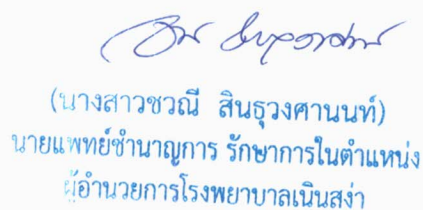 (นางสาวชวณี สินธุวงศานนท์)
นายแพทย์ชำนาญการ รักษาการในตำแหน่ง
ผู้อำนวยการโรงพยาบาลเนินสง่า